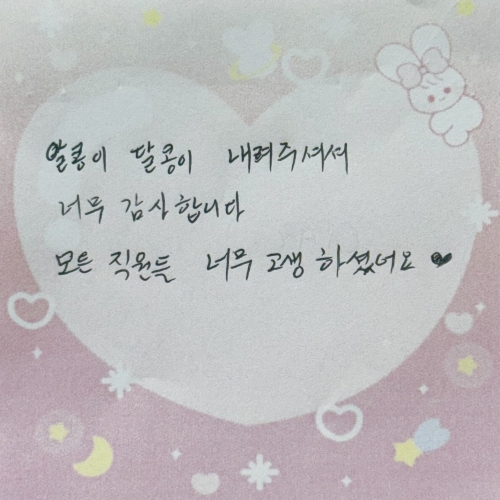 알콩이 달콩이 내려주셔서
너무 감사합니다
모든 직원들 너무 고생 하셨어요 ♥